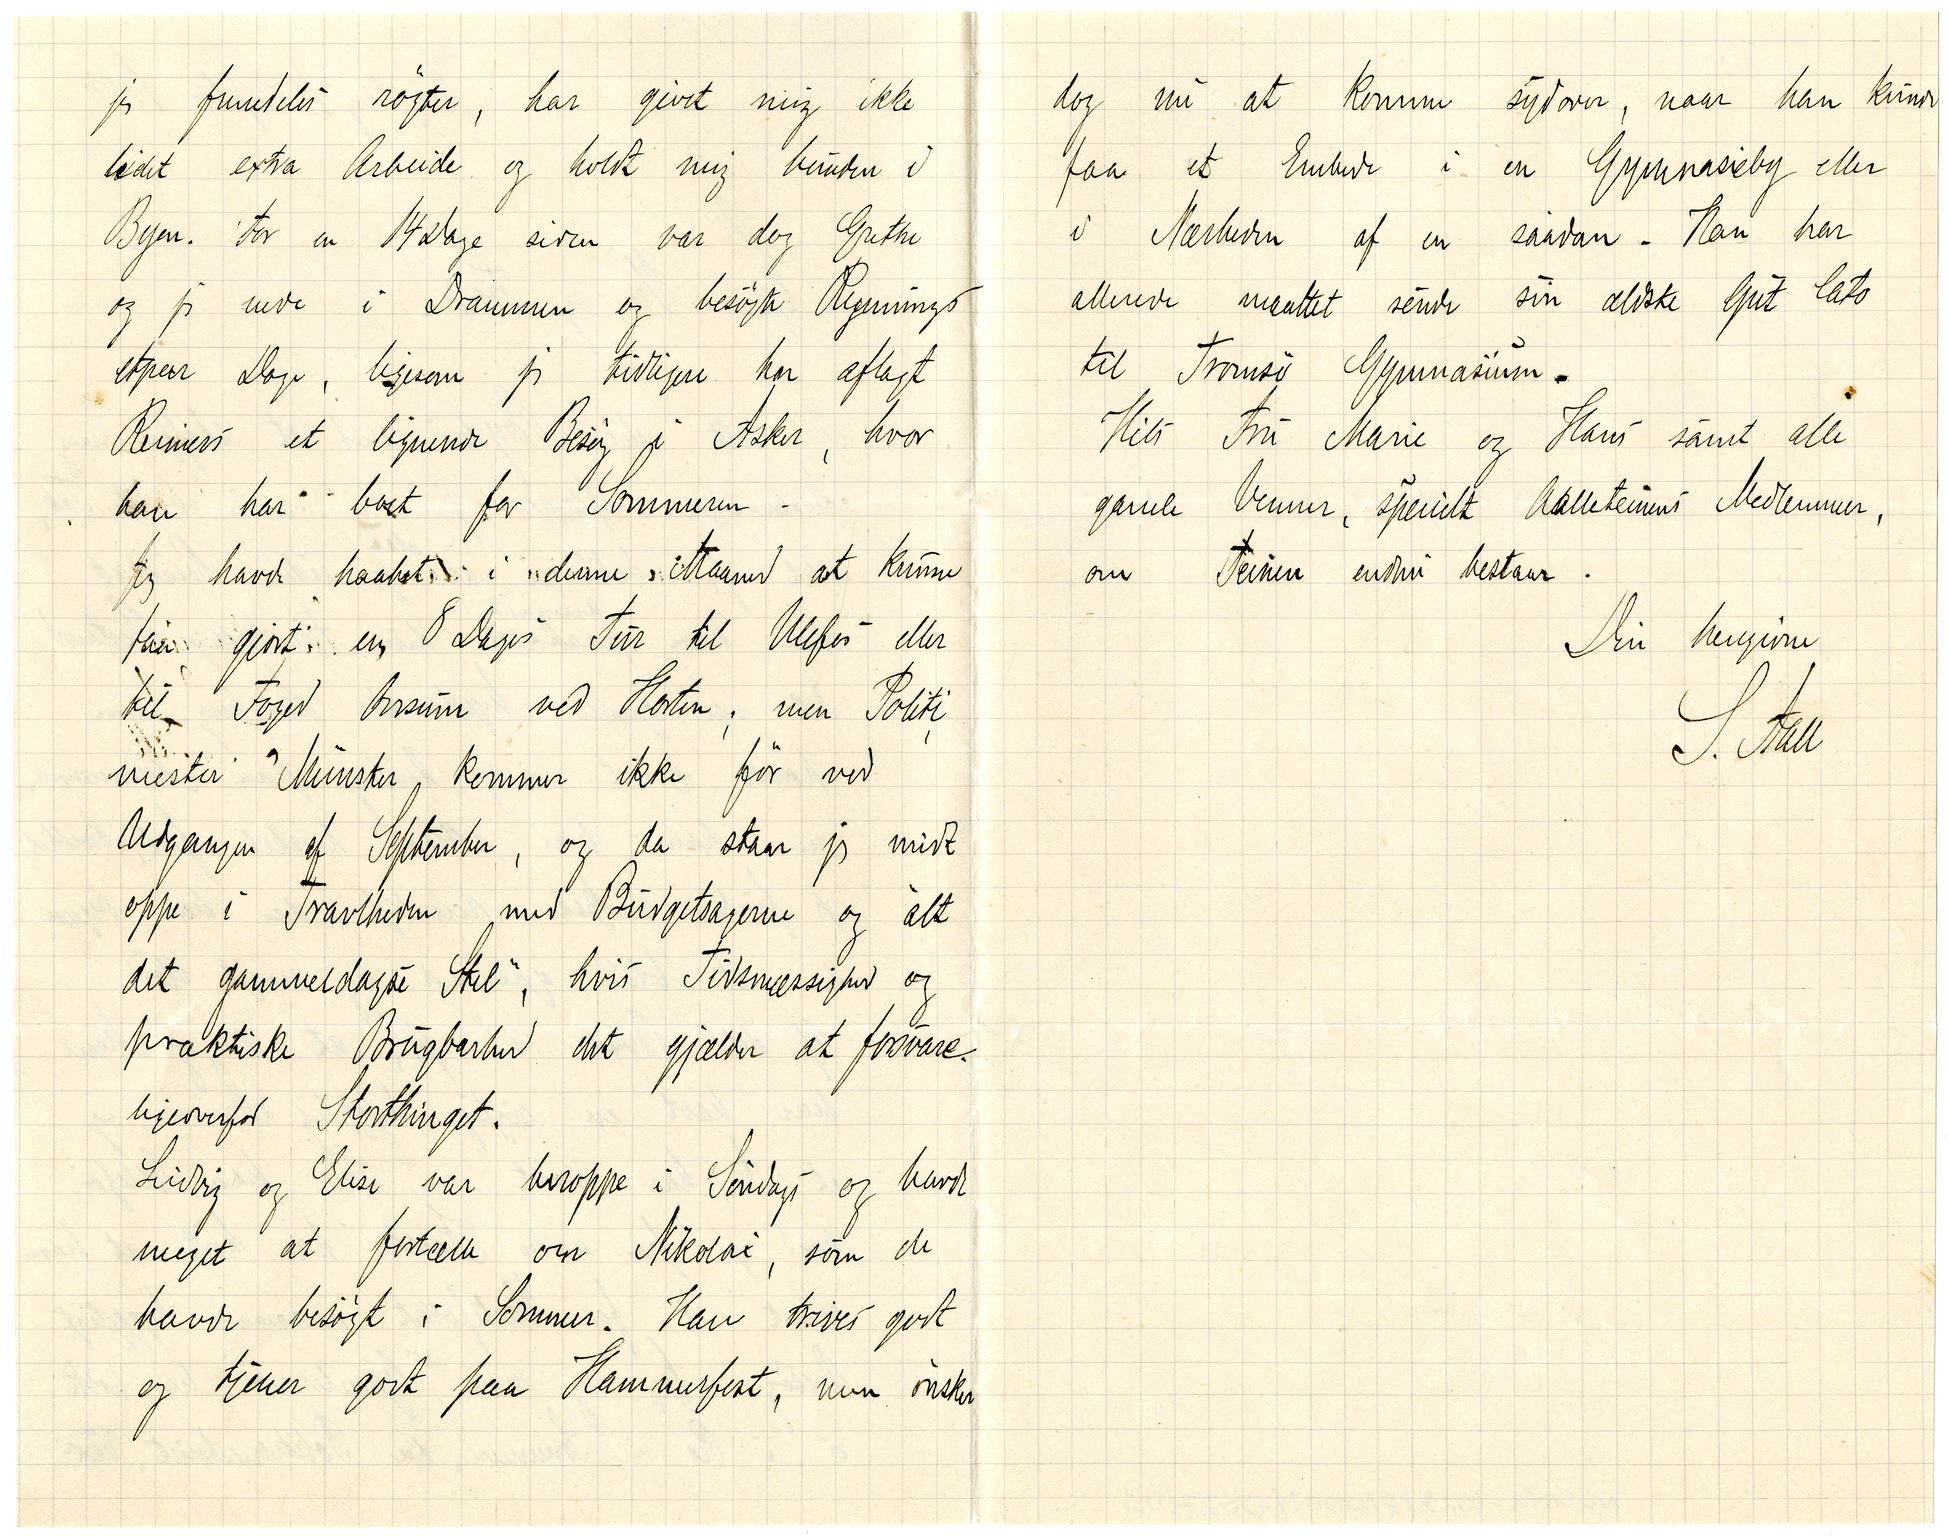 jeg fremdeles røgter, har givet mig ikke
lidet extra Arbeide og holdt mig bunden i
Byen. For en 14 Dage siden var dog Grethe
og jeg nede i Drammen og besøgte
etpar Dage, ligesom jeg tidligere har aflagt
Reimers et lignende Besøg i Asker, hvor
han har boet for Sommeren -
Jeg havde haabet i denne Maaned at kunne
faa gjort en 8 Dages Tur til Ulefos eller
til Foged ved Horten; men Politi
mester Münster kommer ikke før ved
Udgangen af September, og da staar jeg midt
oppe i Travlheden med Budgetsagerne og alt
det gammeldagse Stel", hvis Tidsmæssighed og
praktiske Brugbarhed det gjælder at forsvare
ligeoverfor Storthinget.
Ludvig og Elise var heroppe i Søndags og havde
meget at fortælle om Nikolai, som de
havde besøgt i Sommer. Han trives godt
og tjener godt paa Hammerfest, men ønsker
dog nu at komme sydover, naar han kunde
faa et Embede i en Gymnasieby eller
i Nærheden af en saadan - Han har
allerede maattet sende sin ældste Gut Cato
til Tromsø Gymnasium.
Hils Fru Marie og Hans samt alle
gamle Venner, specielt Aalleteinens Medlemmer,
om Teinen endnu bestaar.
Din hengivne
S. Aall